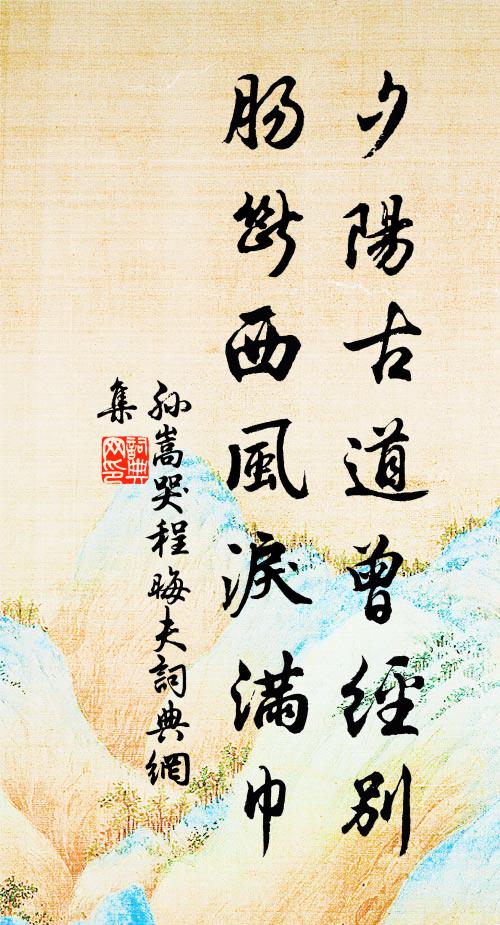 夕陽古道曾經別
腸斷西風淚滿巾
孫嵩哭程晦夫詞典網
集
詞典
网印